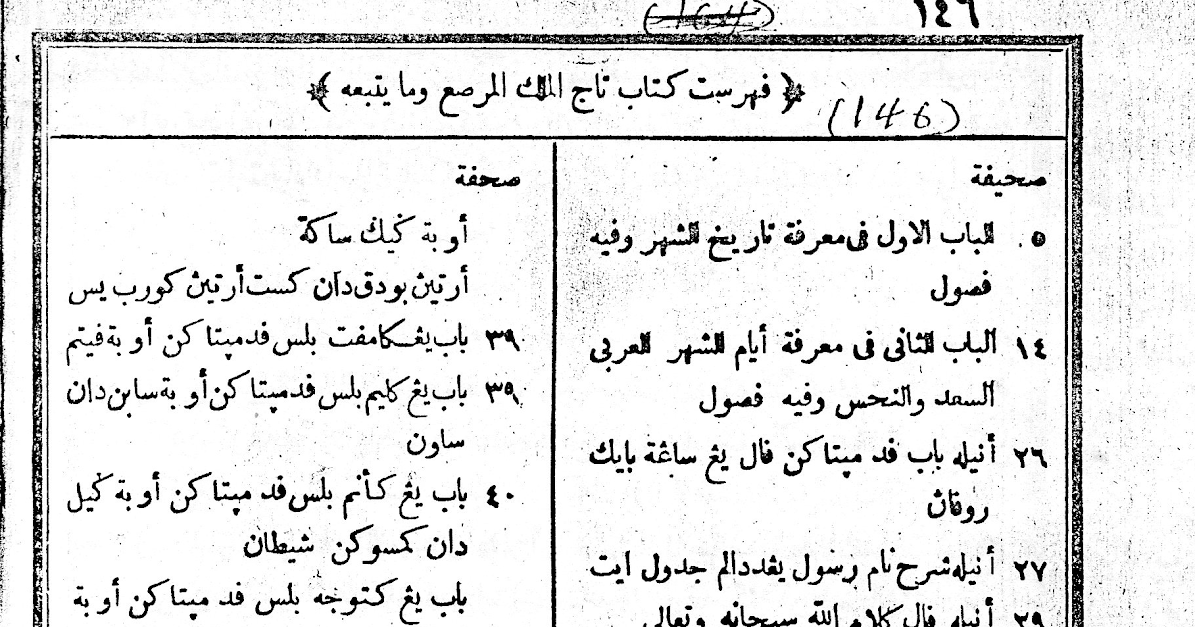 ١٤٦
(164)
﴿ فهرست كتاب تاج الملك المرصع وما يتبعه ﴾
(146)
صحيفة
٥ الباب الاول فى معرفة تاريخ الشهر وفيه
فصول
١٤ الباب الثانى فى معرفة أيام الشهر العربى
السعد والنحس وفيه فصول
٢٦ أنيله باب فد مپتاكن فال يڠ ساڠة بايك
روڤاڽ
٢٧ أنيله شرح نام رسول يڠددالم جدول ايت
٢٩ أنيله فال كلام الله سبحانه وتعالى
صحفة
أوبة ݢيݢ ساكة
أرتين بودق دان كست أرتين كورب يس
٣٩ باب يڠ كامفت بلس فد مپتاكن أوبة فيتم
٣٩ باب يڠ كليم بلس فد مپتاكن أوبة سابن دان
ساون
٤٠ باب يڠ كأنم بلس فد مپتاكن أوبة ݢيل
دان كمسوكن شيطان
باب يڠ كتوجه بلس فد مپتاكن أوبة